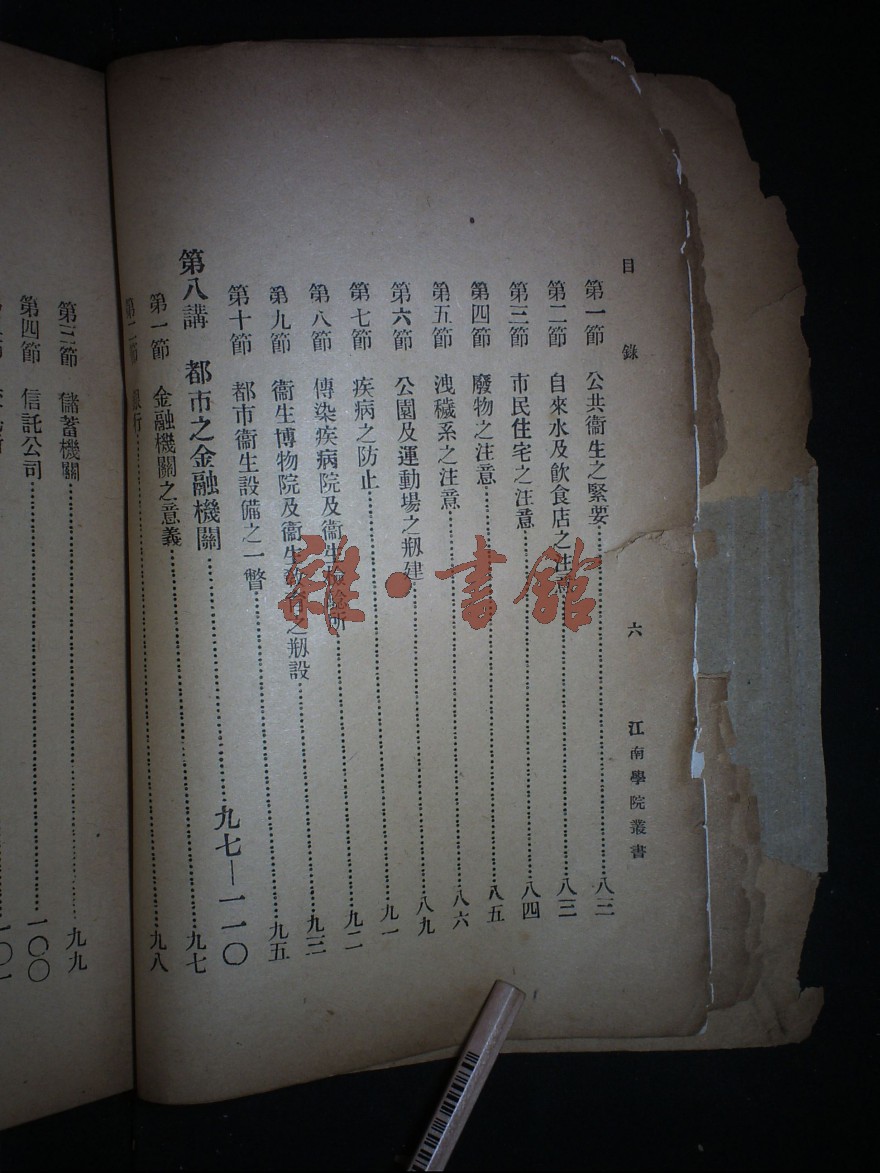 目錄 六 江南學院叢書
第一節 公共衞生之緊要……八三
第二節 自來水及飲食店之注意……八三
第三節 市民住宅之注意……八四
第四節 廢物之注意……八五
第五節 洩穢系之注意……八六
第六節 公園及運動場之剏建……八九
第七節 疾病之防止……九一
第八節 傳染疾病院及衞生檢驗所……九二
第九節 衞生博物院及衞生教育之剏設……九三
第十節 都市衞生設備之一瞥……九五
第八講 都市之金融機關……九七—一一〇
第一節 金融機關之意義……九七
第二節 銀行……九八
第三節 儲蓄機關……九九
第四節 信託公司……一〇〇
一〇一
雜·書館